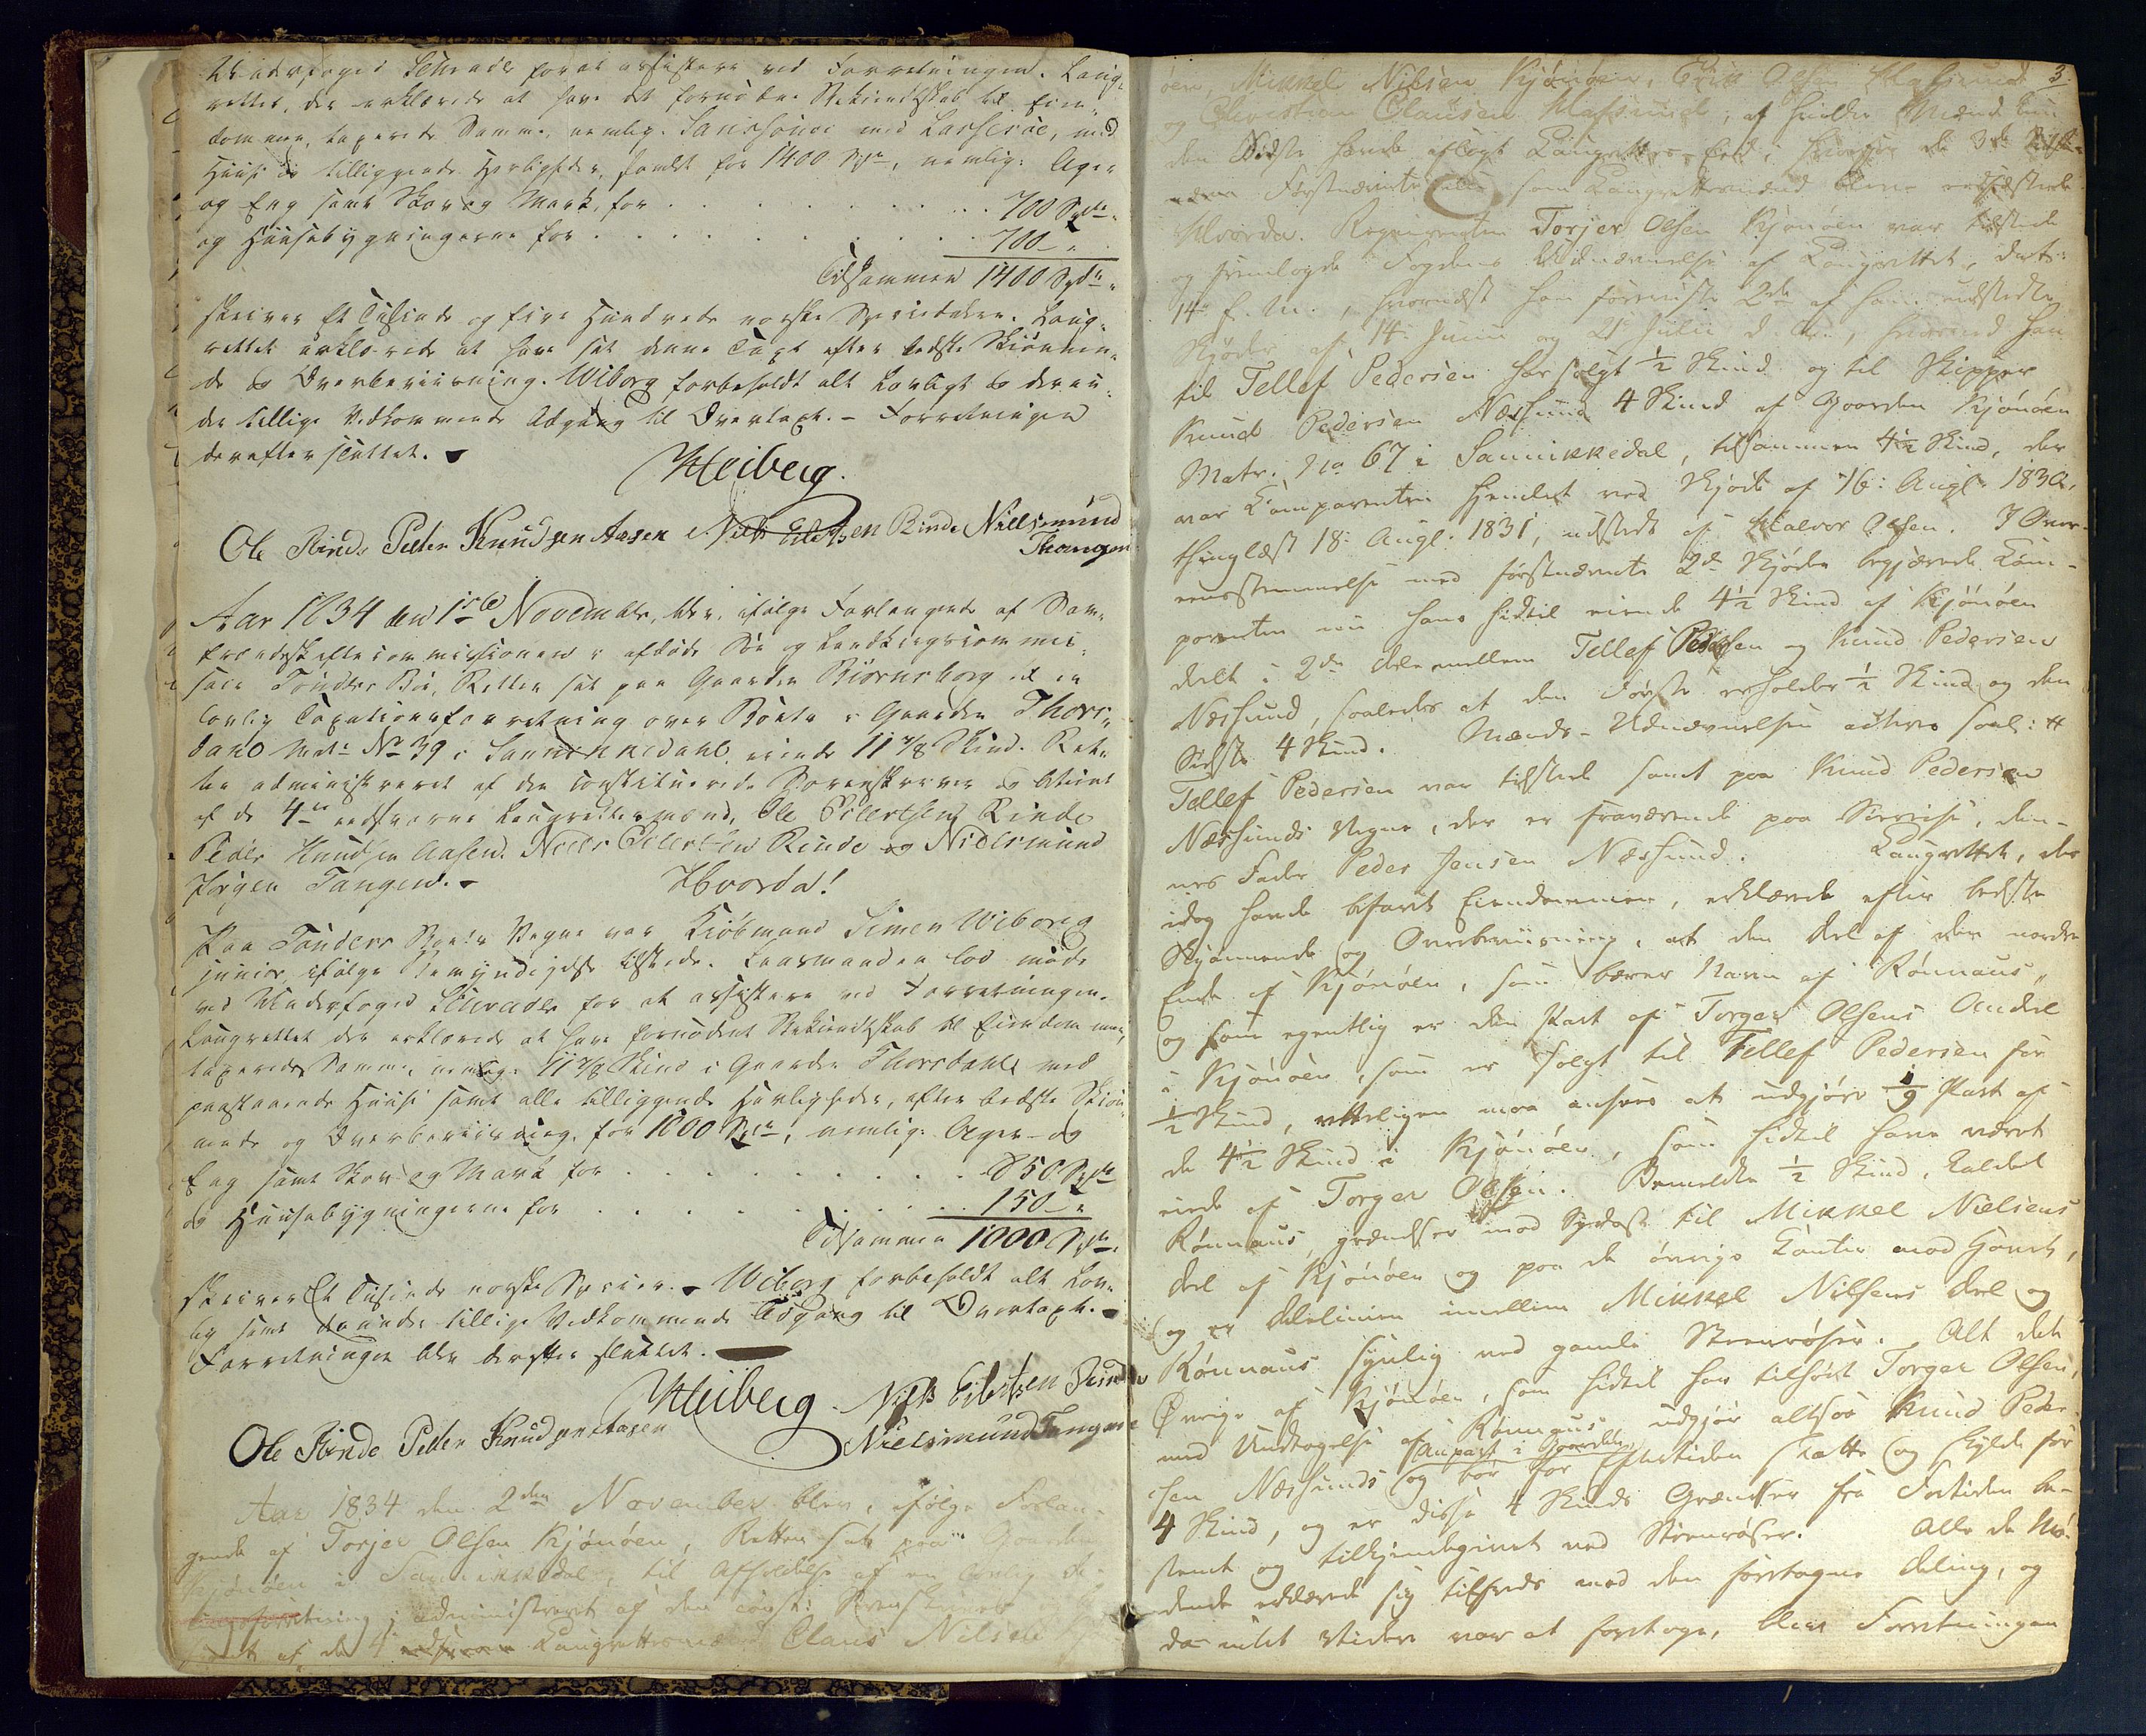 Underfoged Schrader for at assistere ved Forretningen. Laug-
rettet, der erklærede at have det fornødne Bekiendtskab til Eien-
dommen, taxerede Samme, nemlig: Sanssouci med Lassesøe, med
Huuse og tilliggende Herligheder, samlet for 1400 Spd, nemlig: Ager
og Eng samt Skov og Mark, for . . . . . . . . . 700 Spd.
og Huusebygningerne for . . . . . . . . . . 700 "
Tilsammen 1400 Spd.
skriver Et Tusinde og fire Hundrede norske Speciedaler. Laug-
rettet erklærede at have sat denne Taxt efter bedste Skiønnen-
de og Overbeviisning. Wiborg forbeholdt alt Lovligt og derun-
der tillige Vedkommende Adgang til Overtaxt. - Forretningen
derefter sluttet. -
Heiberg.
Ole Rinde Peder Knudsen Aasen Niels Eilertsen Rinde Nielsmund
Thangen
Aar 1834 den 1ste November, blev, ifølge Forlangende af
commissionen i afdøde Sø og Landkrigscommis-
sair Tønders Bo, Retten sat paa Gaarden Biørnsborg til en
lovlig Taxationsforretning over Boets i Gaarden Thors-
dahl Mat: No 39 i Sannikedahl eiende 11 7/8 Skind. Ret-
ten administreret af den constituerede Sorenskriver og betient
af de 4re edsvorne Laugrettesmænd, Ole Eilertsen Rinde
Peder Knudsen Aasen. Niels Eilertsen Rinde og Nielsmund
Jørgen Tangen. -
Hvorda!
Paa Tønders Boets Vegne var Kiøbmand Simen Wiborg
junior, ifølge Bemyndigelse tilstede. Laasmanden lod møde
ved Underfoged Schrader for at assistere ved Forretningen.
Laugrettet der erklærede at have fornødent Bekiendtskab til Eiendommen,
taxerede Samme, nemlig: 11 7/8 Skind i Gaarden Thorsdahl med
paastaaende Huuse samt alle tilliggende Herligheder, efter bedste Skiøn-
nende og Overbeviisning, for 1000 Spd, nemlig: Ager- og
Eng samt Skov og Mark for . . . . . . . . 850 Spd
og Huusebygningerne for . . . . . . . . . 150 "
Tilsammen 1000 Spd.
skriver Et Tusinde norske Specier. - Wiborg forbeholdt alt Lov-
ligt samt derunder tillige Vedkommende Adgang til Overtaxt. -
Forretningen blev derefter sluttet. -
Heiberg Niels Eilertsen Rinde
Ole Rinde Peder Knudsen Aasen Nielsmund Tangen
Aar 1834 den 2den November blev, ifølge Forlan-
gende af Torjer Olsen Kjønøen, Retten sat paa Gaarden
Kjønøen i Sannikkedal, til Afholdelse af en lovlig De-
lingsforretning, administreret af den const: Sorenskriver og be-
tjent af de 4 edsvorne Laugrettesmænd Claus Nilsen
3.
øen, Mikkel Nilsen Kjønøen, Erik Olsen Hafsund
og Christian Clausen Hafsund, af hvilke Mænd kun
den Sidste havde aflagt Laugrettes-Eed, hvorfor de 3de
Førstnævnte som Laugrettesmænd bleve edfæstede.
Hvorda. Requirenten Torjer Olsen Kjønøen var tilstede
og fremlagde Fogdens Udnævnelse af Laugrettet, dat:
14 f. M., hvornæst han foreviste 2de af ham udstedte
Skjøder af 14 Junii og 21 Julii d. A., hvorved han
til Tellef Pedersen har solgt 1/2 Skind og til Skipper
Knud Pedersen Næssund 4 Skind af Gaarden Kjønøen
Matr. No 67 i Sannikkedal, tilsammen 4 1/2 Skind, der
var Comparenten hjemlet ved Skjøde af 16 Augt. 1830,
thinglæst 18 Augt. 1831, udstedt af Halvor Olsen. I Over-
eensstemmelse med førstnævnte 2de Skjøder begjærede Com-
parenten nu hans hidtil eiende 4 1/2 Skind af Kjønøen
deelt i 2de Dele mellem Tellef Pedersen og Knud Pedersen
Næssund, saaledes at den Første erholder 1/2 Skind og den
Sidste 4 Skind. Mænds-Udnævnelsen lyder saal:
Tellef Pedersen var tilstede samt paa Knud Pedersen
Næssunds Vegne, der er fraværende paa Søreise, den-
nes Fader Peder Jensen Næssund. Laugrettet, der
idag havde befaret Eiendommen, erklærede efter bedste
Skjønnende og Overbeviisning, at den Deel af den nordre
Ende af Kjønøen, som bærer Navn af "Rønnaus"
og som egentlig er den Part af Torger Olsens Andeel
i Kjønøen, som er solgt til Tellef Pedersen for
1/2 Skind, retteligen maa ansees at udgjøre 1/9 Part af
de 4 1/2 Skind i Kjønøen, som hidtil have været
eiede af Torger Olsen. Bemeldte 1/2 Skind, kaldet
Rønnaus, grændser mod Sydost til Mikkel Nielsens
Deel af Kjønøen og paa de øvrige Kanter mod Havet,
og er Delelinien imellem Mikkel Nilsens Deel og
Rønnaus synlig ved gamle Steenrøser. Alt det
Øvrige af Kjønøen, som hidtil har tilhørt Torger Olsen,
med Undtagelse af Rønnaus, udgjør altsaa Knud Peder-
anpart i Gaarden,
sen Næssunds og bør for Eftertiden skatte og skylde for
4 Skind, og er disse 4 Skinds Grændser fra Fortiden be-
stemt og tilkjendegivet ved Steenrøser. Alle de Mø-
dende erklærede sig tilfreds med den foretagne Deling, og
da intet videre var at foretage, blev Forretningen